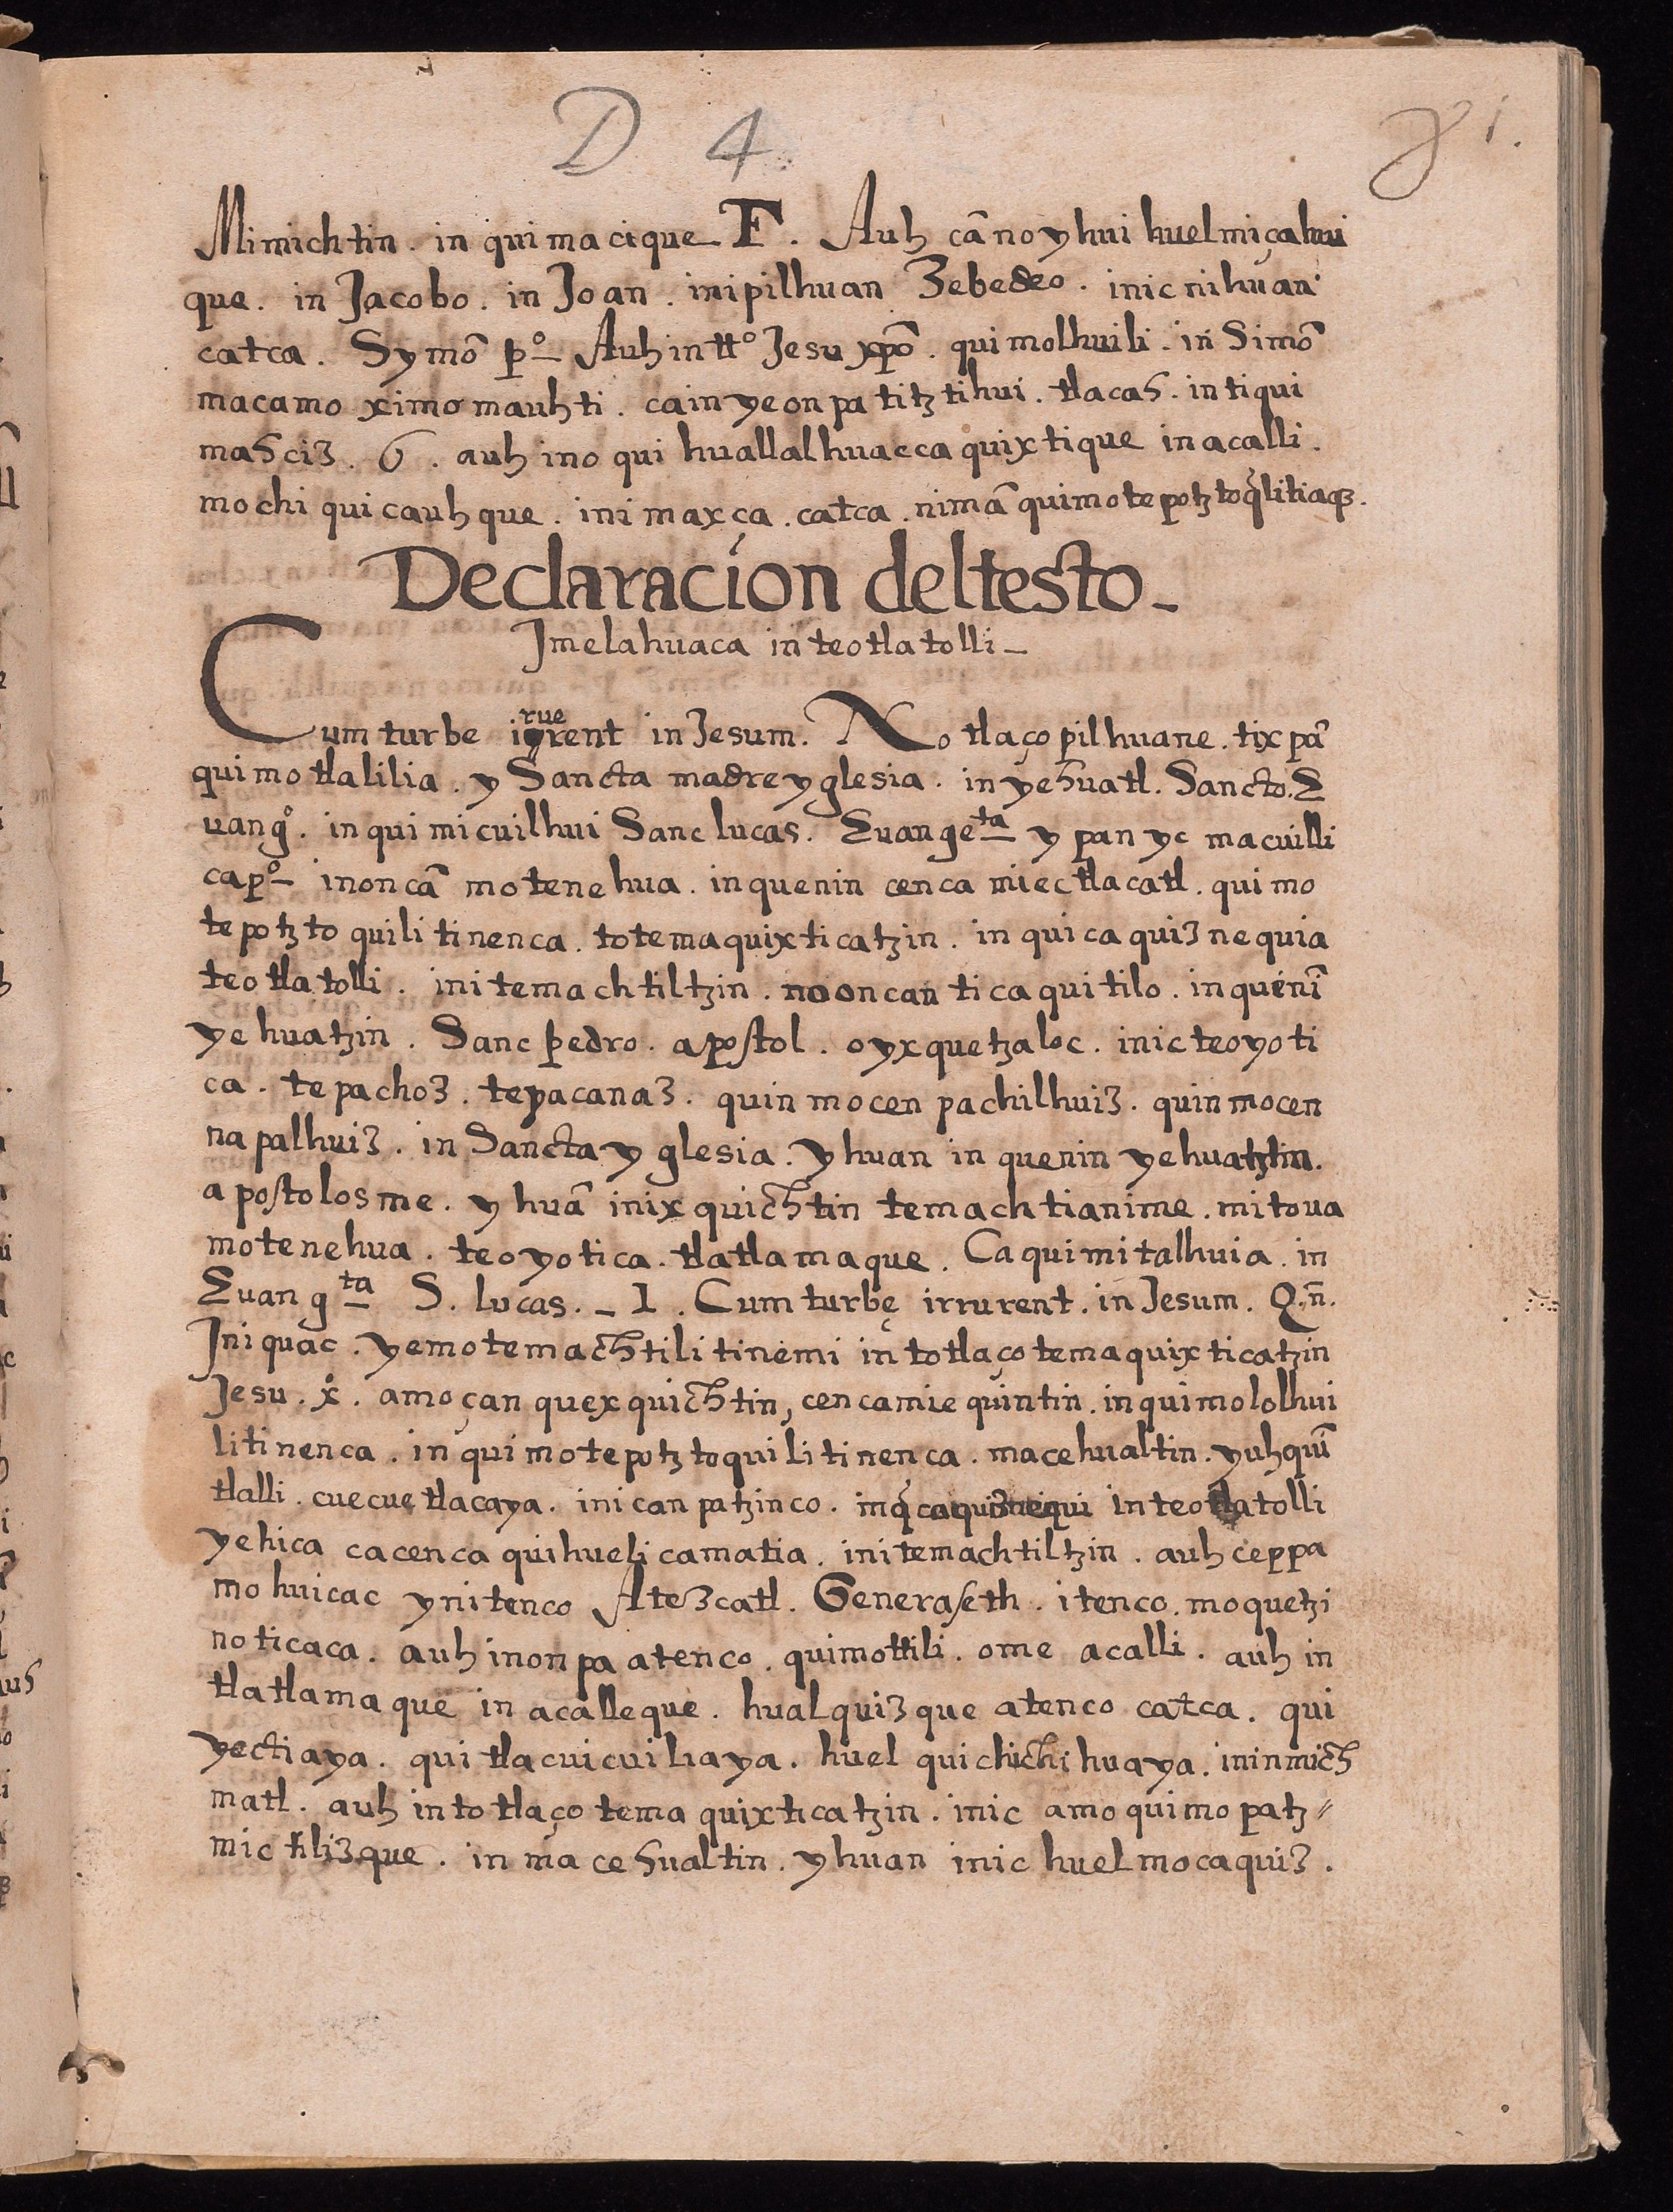 D 4
81.
Mimichtin. in quimacique F. Auh cãnoyhui huelmiçahui
que. in Jacobo. in Joan. inipilhuan Zebedeo. inicnihuan
catca. Symõ pº Auh in ttº Jesu xpõ. quimolhuili. in Simõ
macamo ximomauhti. cain ye onpa titztihui. tlacah. in tiqui
mahciz. G. auh ino qui huallalhuacca quixtique in acalli.
mochi quicauhque. ini maxca. catca. nimã quimotepotztoq̃litiaq̃.
Declaracion deltesto
Jmelahuaca in teotlatolli
Cum turbe irruerent in Jesum. No tlaçopilhuane. tixpã
quimotlalilia. y Sancta madre yglesia. in yehuatl. Sancto. E
uangº. in quimicuilhui Sanc lucas. Euangeta ypan yc macuilli
capº inoncã motenehua. in quenin cenca miec tlacatl. quimo
tepotztoquilitinenca. totemaquixticatzin. in quicaquiznequia
teotlatolli. initemachtiltzin. no oncan ticaquitilo. in quenĩ
yehuatzin. Sanc pedro. apostol. oyxquetzaloc. inic teoyoti
ca. tepachoz. tepacanaz. quinmocenpachilhuiz. quinmocen
napalhuiz. in Sancta yglesia. yhuan in quenin yehuatztin.
apostolosme. yhuã inixquichtin temachtianime. mitoua
motenehua. teoyotica. tlatlamaque. Ca quimitalhuia. in
Euangta S. lucas. 1. Cum turbę irrurent. in Jesum. Q.ñ.
Jniquac. yemotemachtilitinemi in totlaçotemaquixticatzin
Jesu. xº. amo çan quexquichtin, cenca miequintin. in quimololhui
litinenca. in quimotepotztoquilitinenca. macehualtin. yuhquĩ
tlalli. cuecuetlacaya. inicanpatzinco. inq̃caquiznequi in teotlatolli
yehica cacenca quihuelicamatia. initemachtiltzin. auh ceppa
mohuicac ynitenco Atezcatl. Generaseth. itenco. moquetzi
noticaca. auh inonpa atenco. quimottili. ome acalli. auh in
tlatlamaque in acalleque. hualquizque atenco catca. qui
yectiaya. quitlacuicuiliaya. huel quichichihuaya. ininmich
matl. auh in totlaçotemaquixticatzin. inic amo quimopatz=
mictilizque. in macehualtin. yhuan inic huelmocaquiz.